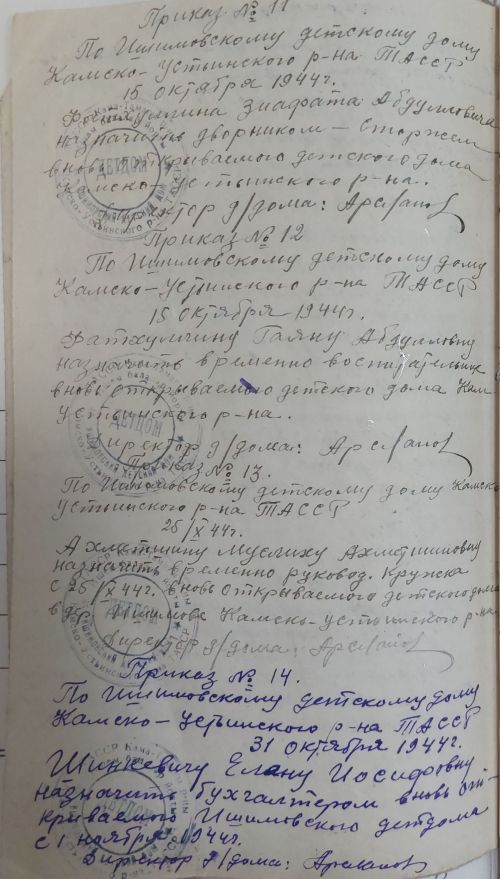 Приказ № 11
По Ишимовскому детскому дому
Камско-Устьинского р-на ТАССР
15 октября 1944г.
Зиафата Абдулловича
назначить дворником – сторжем
вновь открываемого детского дома
Камско-Устьинского р-на.
Директор д/дома: Арсланов
Приказ № 12
По Ишимовскому детскому дому
Камско-Устьинского р-на ТАССР
15 октября 1944г.
Фатхуллину Гаяну Абдулловну
назначить временно воспитательник
вновь открываемого детского дома Кам
Устьинского р-на.
Директор д/дома: Арсланов
Приказ № 13.
По Ишимовскому детскому дому Камско
Устьинского р-на ТАССР
25/X 44г.
Ахметшину Муслиху Ахметшиновну
назначить временно руковод. кружка
с 25/X 44г. вновь открываемого детского дома
в дер. Ишимово Камско-Устьинского р-на
Директор д/дома: Арсланов
Приказ № 14.
По Ишимовскому детскому дому
Камско-Устьинского р-на ТАССР
31 октября 1944г.
Шинкевичу Елану Иосифовну
назначить бухгалтером вновь от-
крываемого Ишимовского детдома
с 1 ноября 1944г.
Директор д/дома: Арсланов
ДЕТДОМ
ДЕТДОМ
ДЕТДОМ
ДЕТДОМ